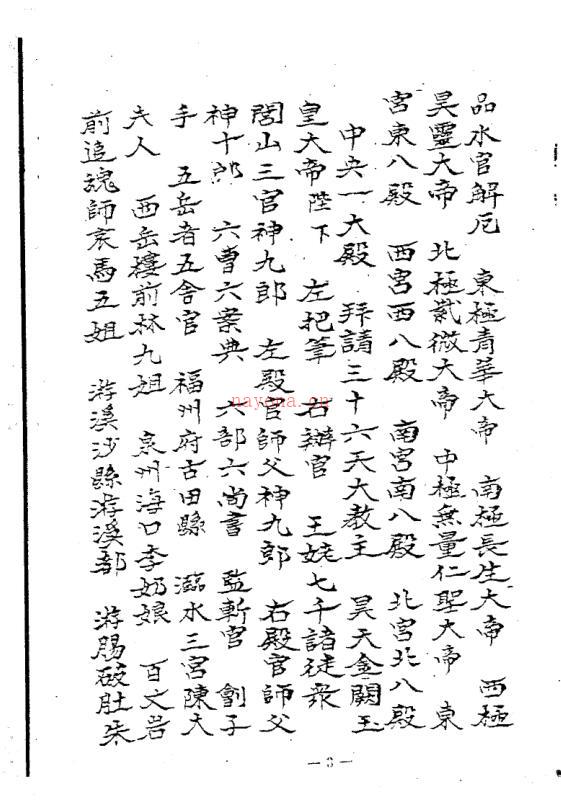 品水官解厄　東極青華大帝　南極長生大帝　西極
昊靈大帝　北極紫微大帝　中極無量仁聖大帝　東
宮東八殿　西宮西八殿　南宮南八殿　北宮北八殿
中央一大殿　拜請三十六天大教主　昊天金闕玉
皇大帝陛下　左把筆　右辦官　王姥七千諸徒眾
閭山三官神九郎　左殿官師父神九郎　右殿官師父
神十郎　六曹六案典　六部六尚書　監斬官　劊子
手　五岳者五舍官　福州府古田縣　臨水三宮陳大
夫人　西岳樓前林九姐　泉州海口李奶娘　百丈岩
前追魂師哀馬五姐　游溪沙縣游溪部　游腸破肚朱
nayona.cn
—3—